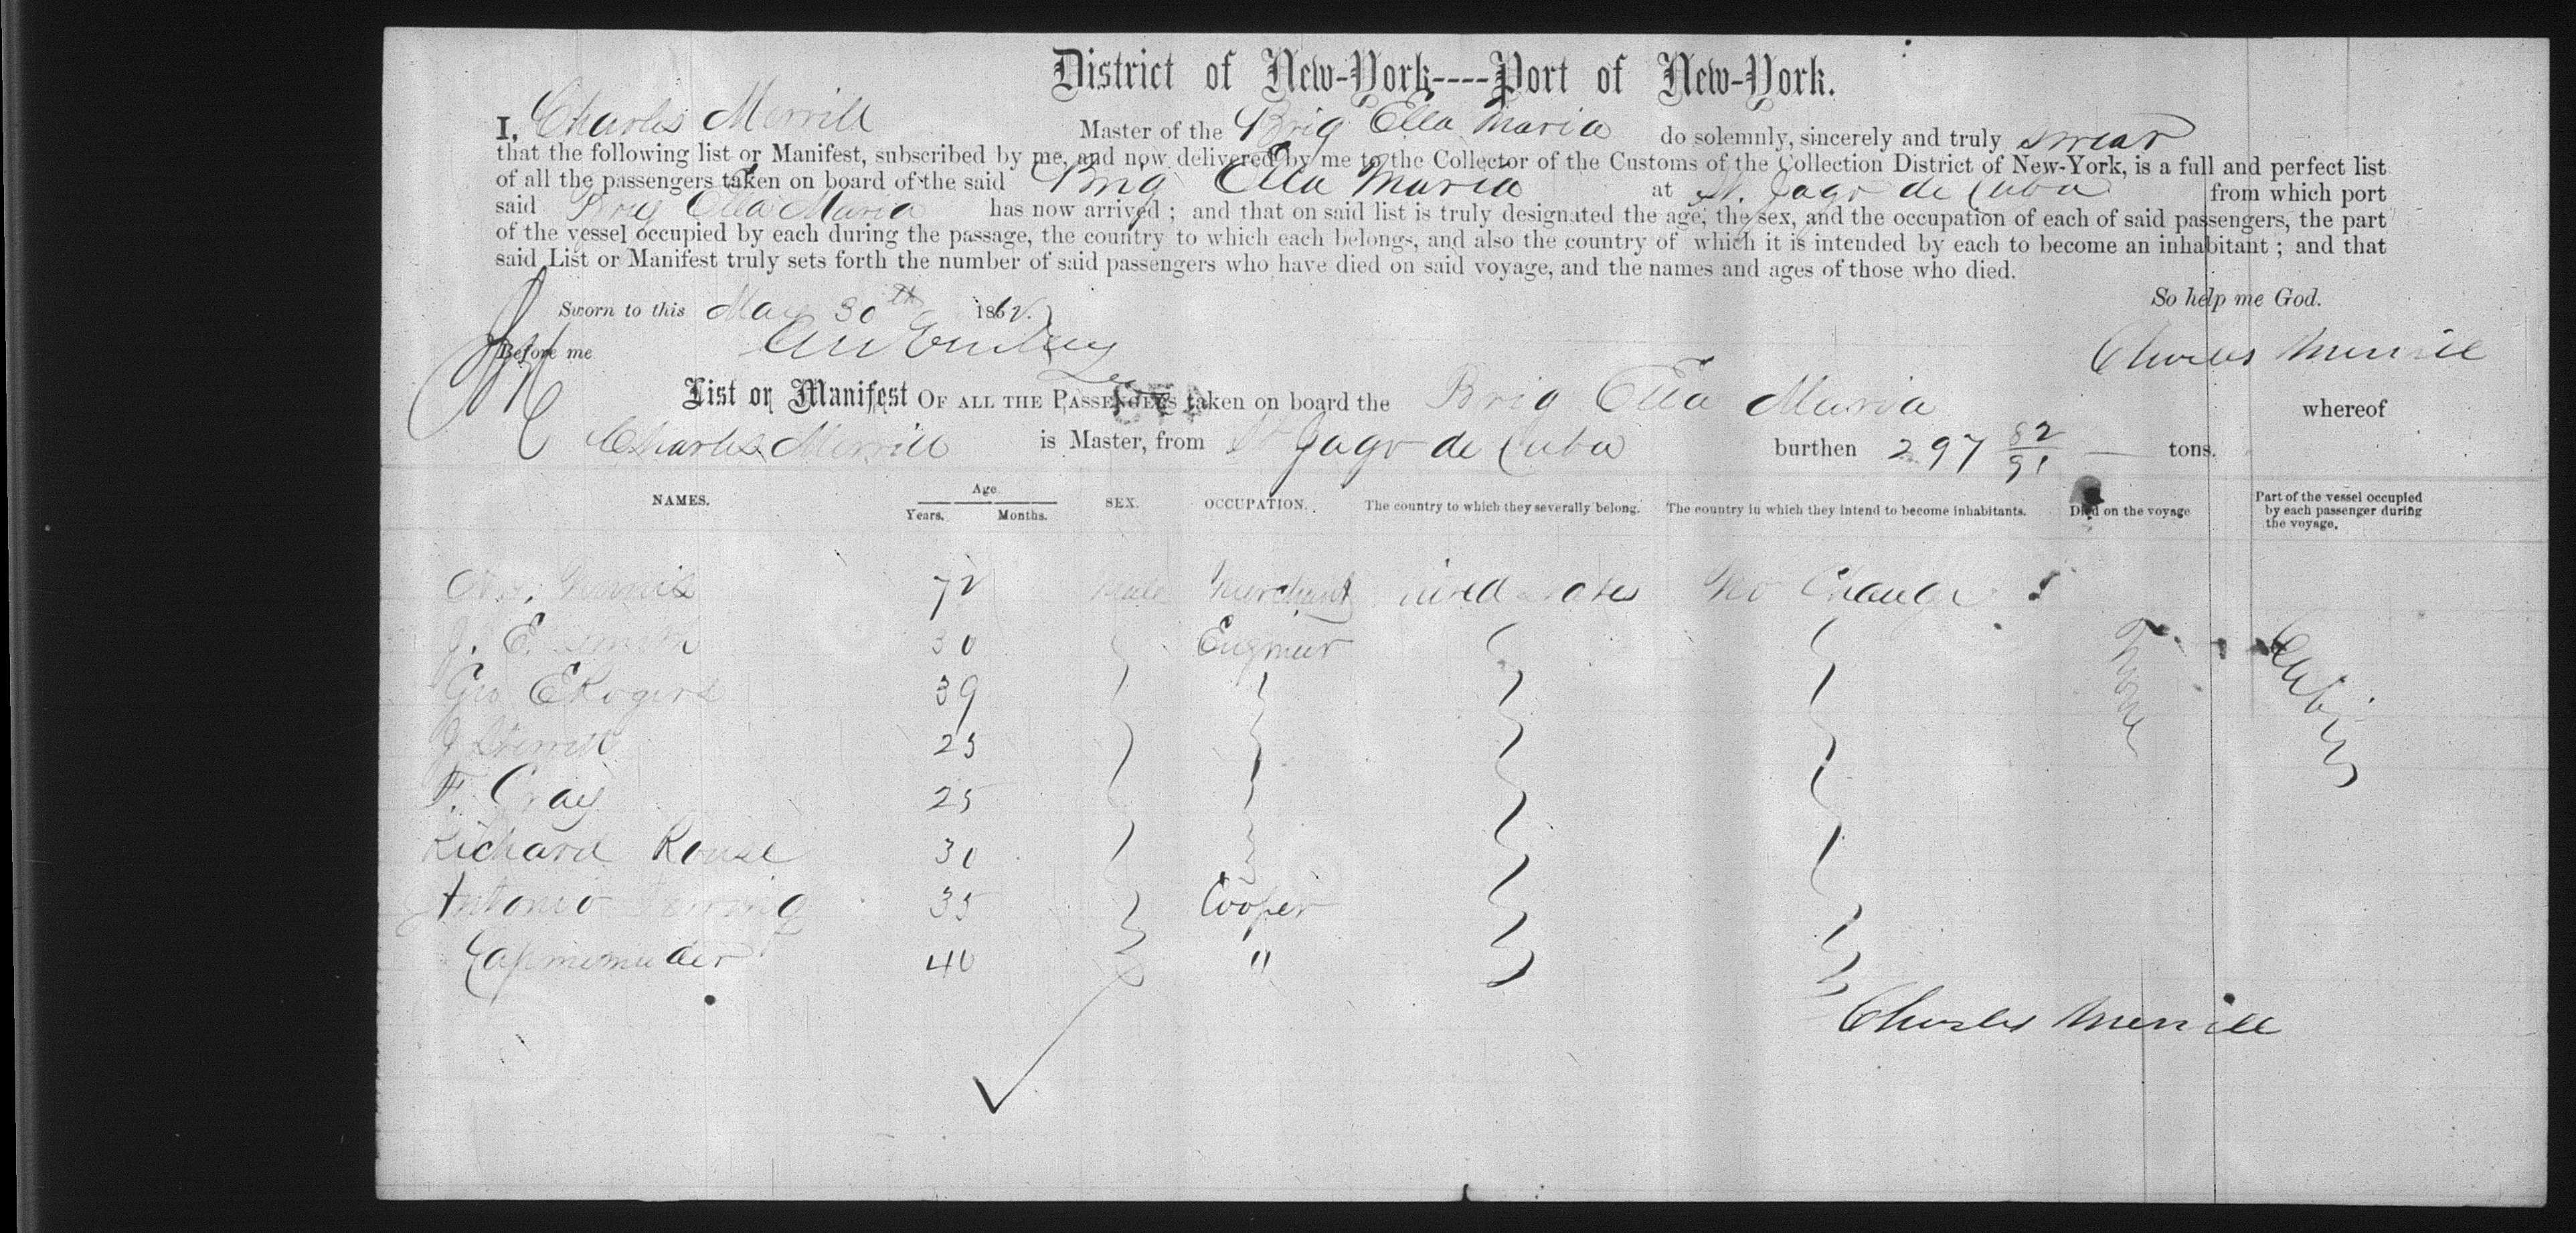 District of New-York----Port of New-York.
I, Charles Merrill Master of the Brig Ella Maria do solemnly, sincerely and truly swear
that the following list or Manifest, subscribed by me, and now delivered by me to the Collector of the Customs of the Collection District of New-York, is a full and perfect list
of all the passengers taken on board of the said Brig Ella Maria at St. Jago de Cuba from which port
said Brig Ella Maria has now arrived; and that on said list is truly designated the age, the sex, and the occupation of each of said passengers, the part
of the vessel occupied by each during the passage, the country to which each belongs, and also the country of which it is intended by each to become an inhabitant; and that
said List or Manifest truly sets forth the number of said passengers who have died on said voyage, and the names and ages of those who died.
So help me God.
Sworn to this May 30th 1862.
Before me
Charles Merrill
List or Manifest OF ALL THE PASSENGERS taken on board the Brig Ella Maria whereof
Charles Merrill is Master, from St Jago de Cuba burthen 297 82/95 tons.
NAMES. Age Years. Months. SEX. OCCUPATION. The country to which they severally belong. The country in which they intend to become inhabitants. Died on the voyage Part of the vessel occupied by each passenger during the voyage.
72 Male Merchant United States No Change
J. E. Smith 30 Engineer None Cabin
Geo E Rogers 39
25
F. Gray 25
Richard Rouse 30
Antonio 35 Cooper
40 "
Charles Merrill